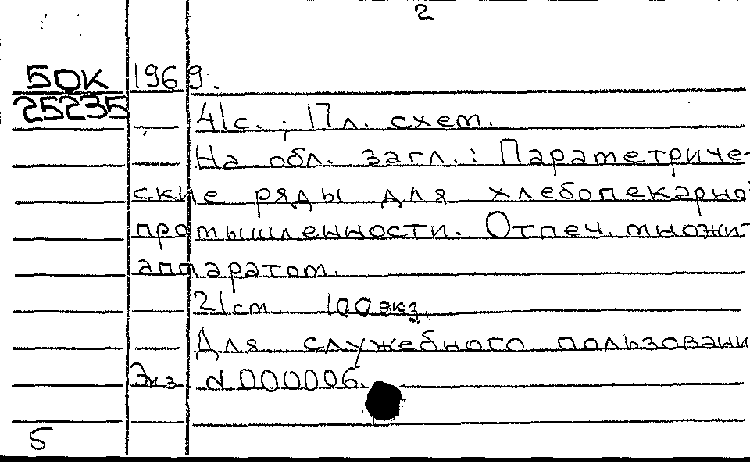 2
50К 1969.
25235
41с.; 17л. схем.
На обл. загл.: Параметриче-
ские ряды для хлебопекарно
промышленности. Отпеч. множит
аппаратом.
21см 100экз.
Для служебного пользовани
Экз N 000006.
5